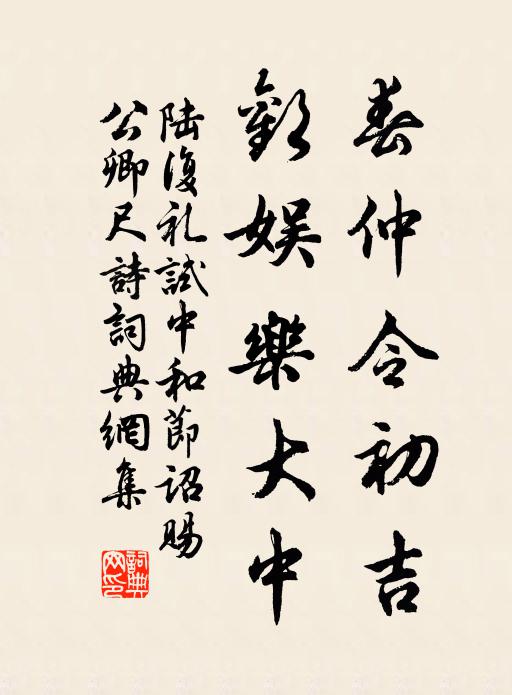 春仲令初吉
歡娛樂大中
陸復礼試中和節詔賜
公卿尺詩詞典網集
詞典网印